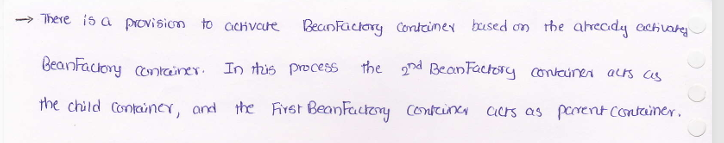 → There is a provision to activate BeanFactory container based on the already activated
BeanFactory container. In this process the 2nd BeanFactory container acts as
the child container, and the First BeanFactory container acts as parent container.